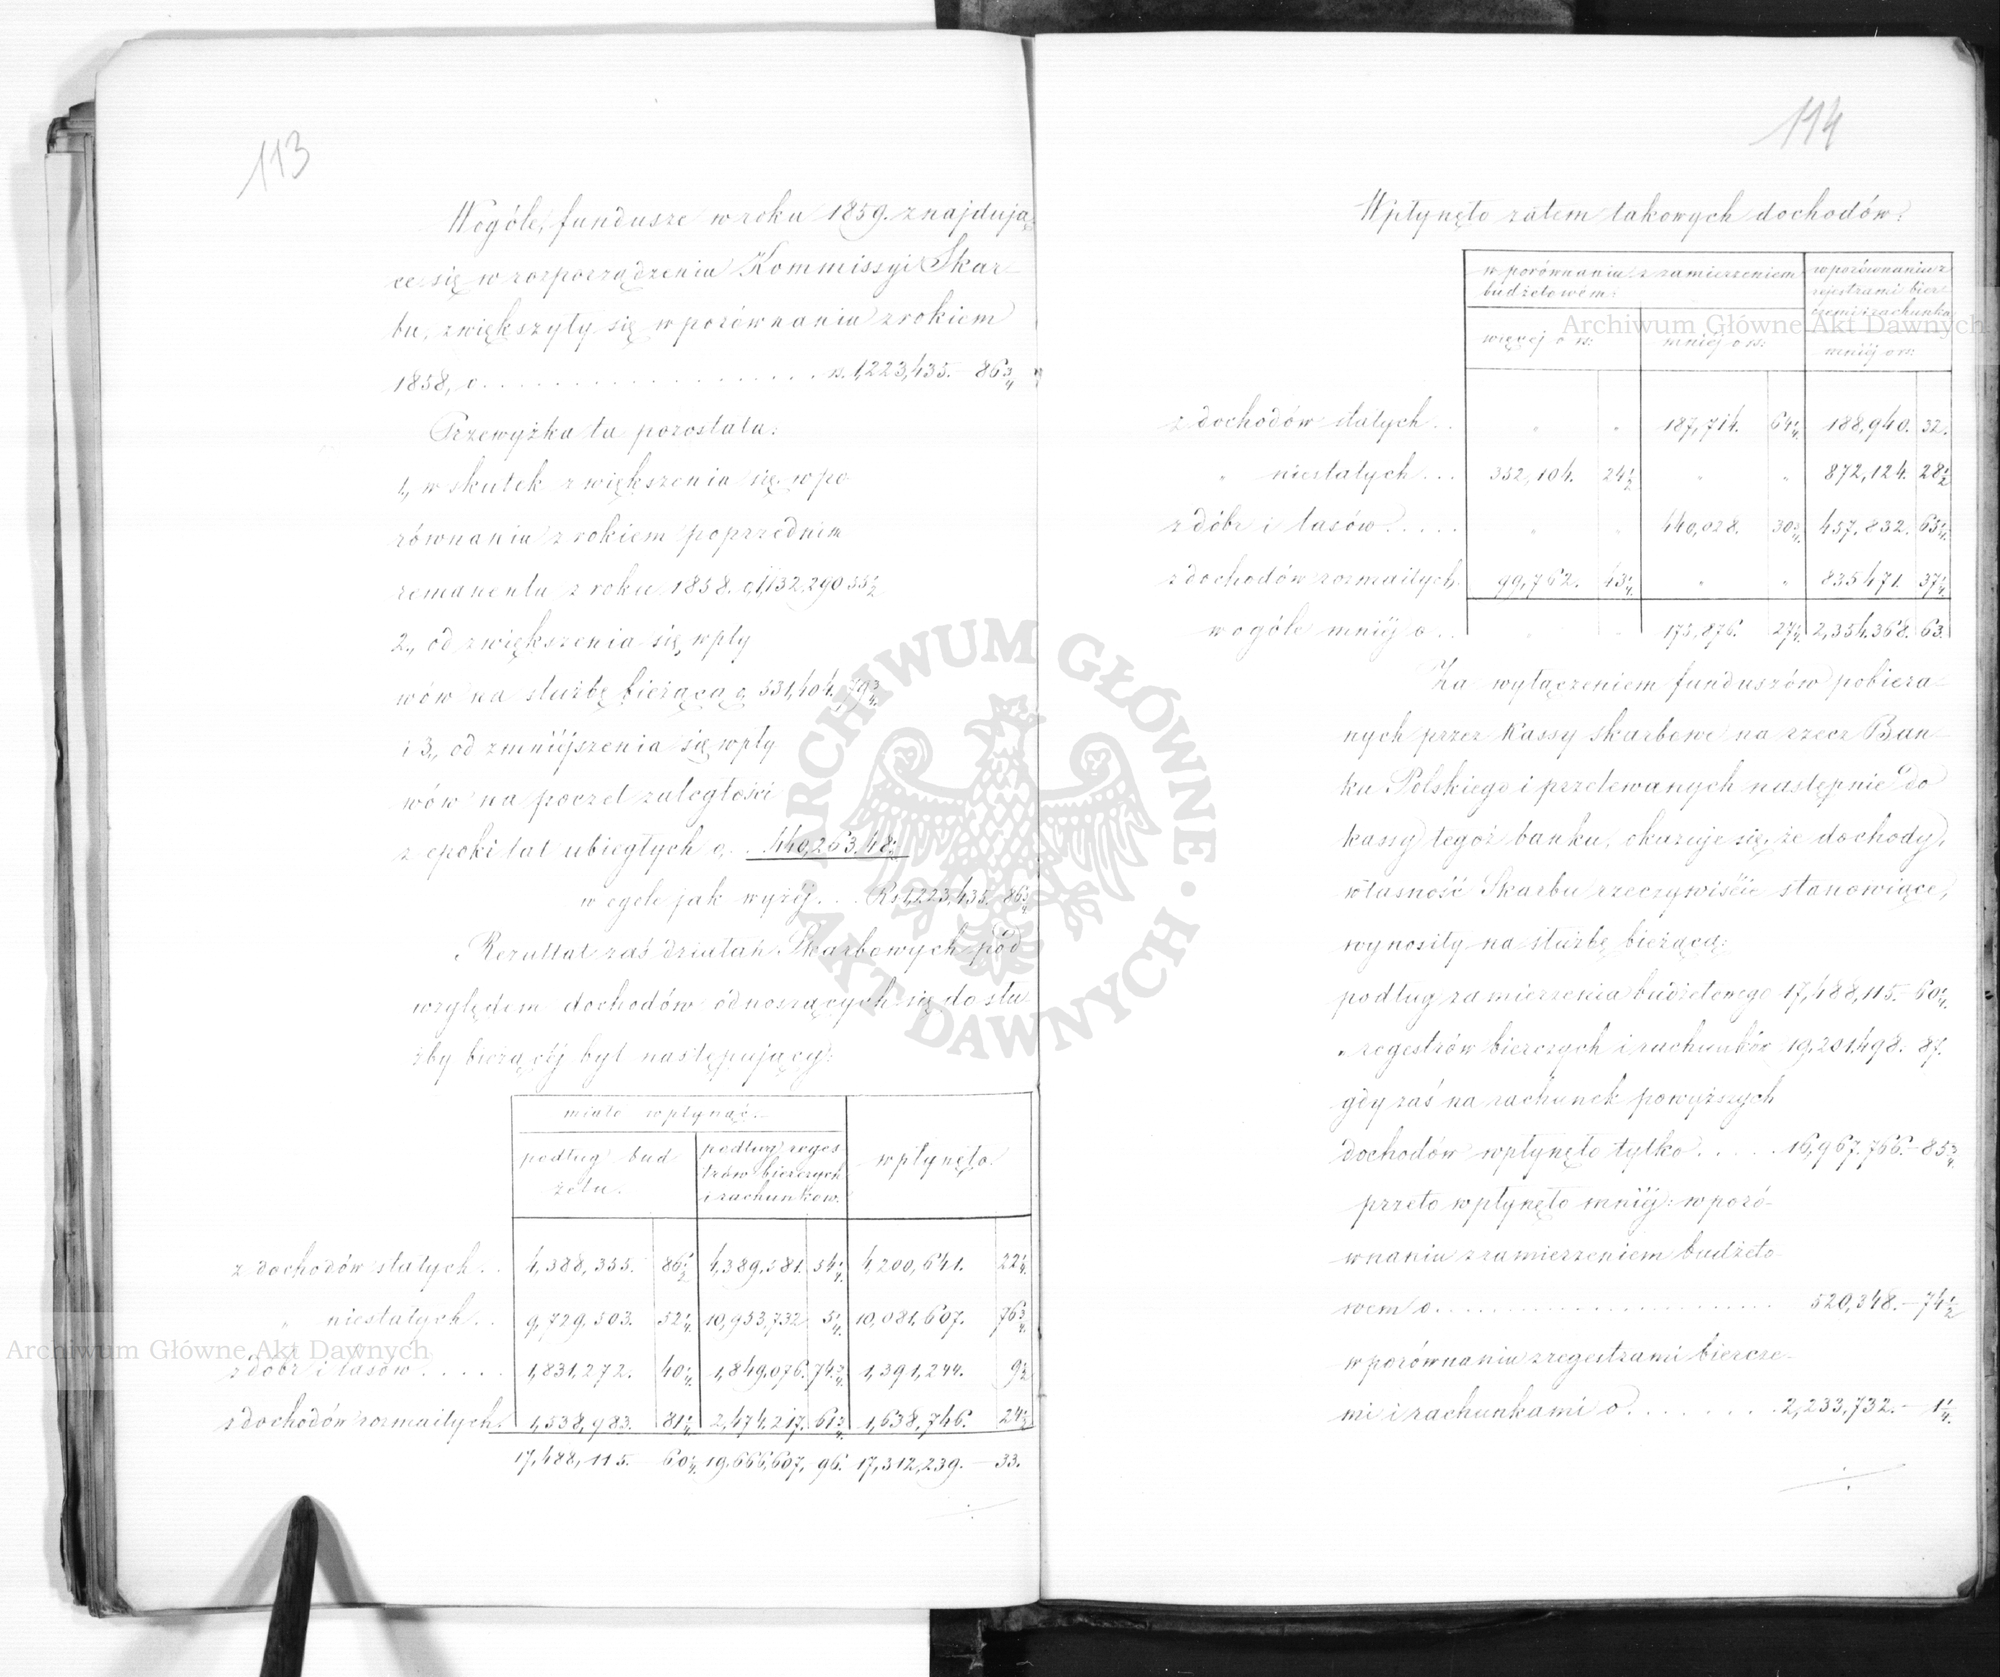 113
Wogóle, fundusze w roku 1859. znajdują
ce się w rozporządzeniu Kommissyi Skar-
bu, zwiększyły się w porównaniu z rokiem
1858, o . . . . . . . . . . rs. 1,223,435. - 86 3/4
Przewyżka ta pozostała:
1, w skutek zwiększenia się w po
równaniu z rokiem poprzednim
remanentu z roku 1858. o, 1,132,290 55 1/2
2., od zwiększenia się wpły
wów na służbę bieżącą o, 531,404. 79 3/4
i 3., od zmniéjszenia się wpły
wów na poczet zaległości
z epoki lat ubiegłych o, . . 440,263. 48 1/2
w ogóle jak wyżéj . . . Rs 1,223,435. 86 3/4
Rezultat zaś działań Skarbowych pod
względem dochodów odnoszących się do słu
żby bieżącéj był następujący:
miało wpłynąć:
podług bud
żetu.
podług reges
trów bierczych
i rachunków.
wpłynęło
z dochodów stałych . . 4,388,355. 86 1/2 4,389,581. 54 1/4 4,200,641. 22 1/4
„ niestałych . . 9,729,503. 52 1/4 10,953,732 5 1/4 10,081,607. 76 3/4
z dóbr i lasów . . . . . 1,831,272. 40 1/4 1,849,076. 74 3/4 1,391,244. 9 1/2
z dochodów rozmaitych 1,538,983. 81 1/4 2,474,217. 61 3/4 1,638,746. 24 1/2
17,488,115. 60 1/4 19,666,607, 96. 17,312,239. - 33.
114
Wpłynęło zatem takowych dochodów:
w porównaniu z zamierzeniem
budżetowém:
w porównaniu z
rejestrami bier
czemi i rachunka
więcéj o rs:
mniéj o rs:
mniéj o rs:
z dochodów stałych . . „ „ 187,714. 64 1/4 188,940. 32.
„ niestałych . . . 352,104. 24 1/2 „ „ 872,124. 28 1/2
z dóbr i lasów . . . . „ „ 440,028. 30 3/4 457,832. 65 1/4
z dochodów rozmaitych. 99,762. 43 1/4 „ „ 835,471. 37 1/4
w ogóle mniéj o . . „ „ 175,876. 27 1/4 2,354,368. 63.
Za wyłączeniem funduszów pobiera-
nych przez Kassy skarbowe na rzecz Ban-
ku Polskiego i przelewanych następnie do
kassy tegoż banku, okazuje się, że dochody,
własność Skarbu rzeczywiście stanowiące,
wynosiły na służbę bieżącą:
podług zamierzenia budżetowego 17,488,115. - 60 1/4
„ regestrów bierczych i rachunków 19,201,498. - 87.
gdy zaś na rachunek powyższych
dochodów wpłynęło tylko . . . . . 16,967,766. - 85 3/4
przeto wpłynęło mniéj: w poró-
wnaniu z zamierzeniem budżeto
wem o . . . . . . . . . . 520,348. - 74 1/2
w porównaniu z regestrami biercze-
mi i rachunkami o . . . . . . . 2,233,732. - 1 1/4
Archiwum Główne Akt Dawnych
Archiwum Główne Akt Dawnych
ARCHIWUM GŁÓWNE
AKT DAWNYCH